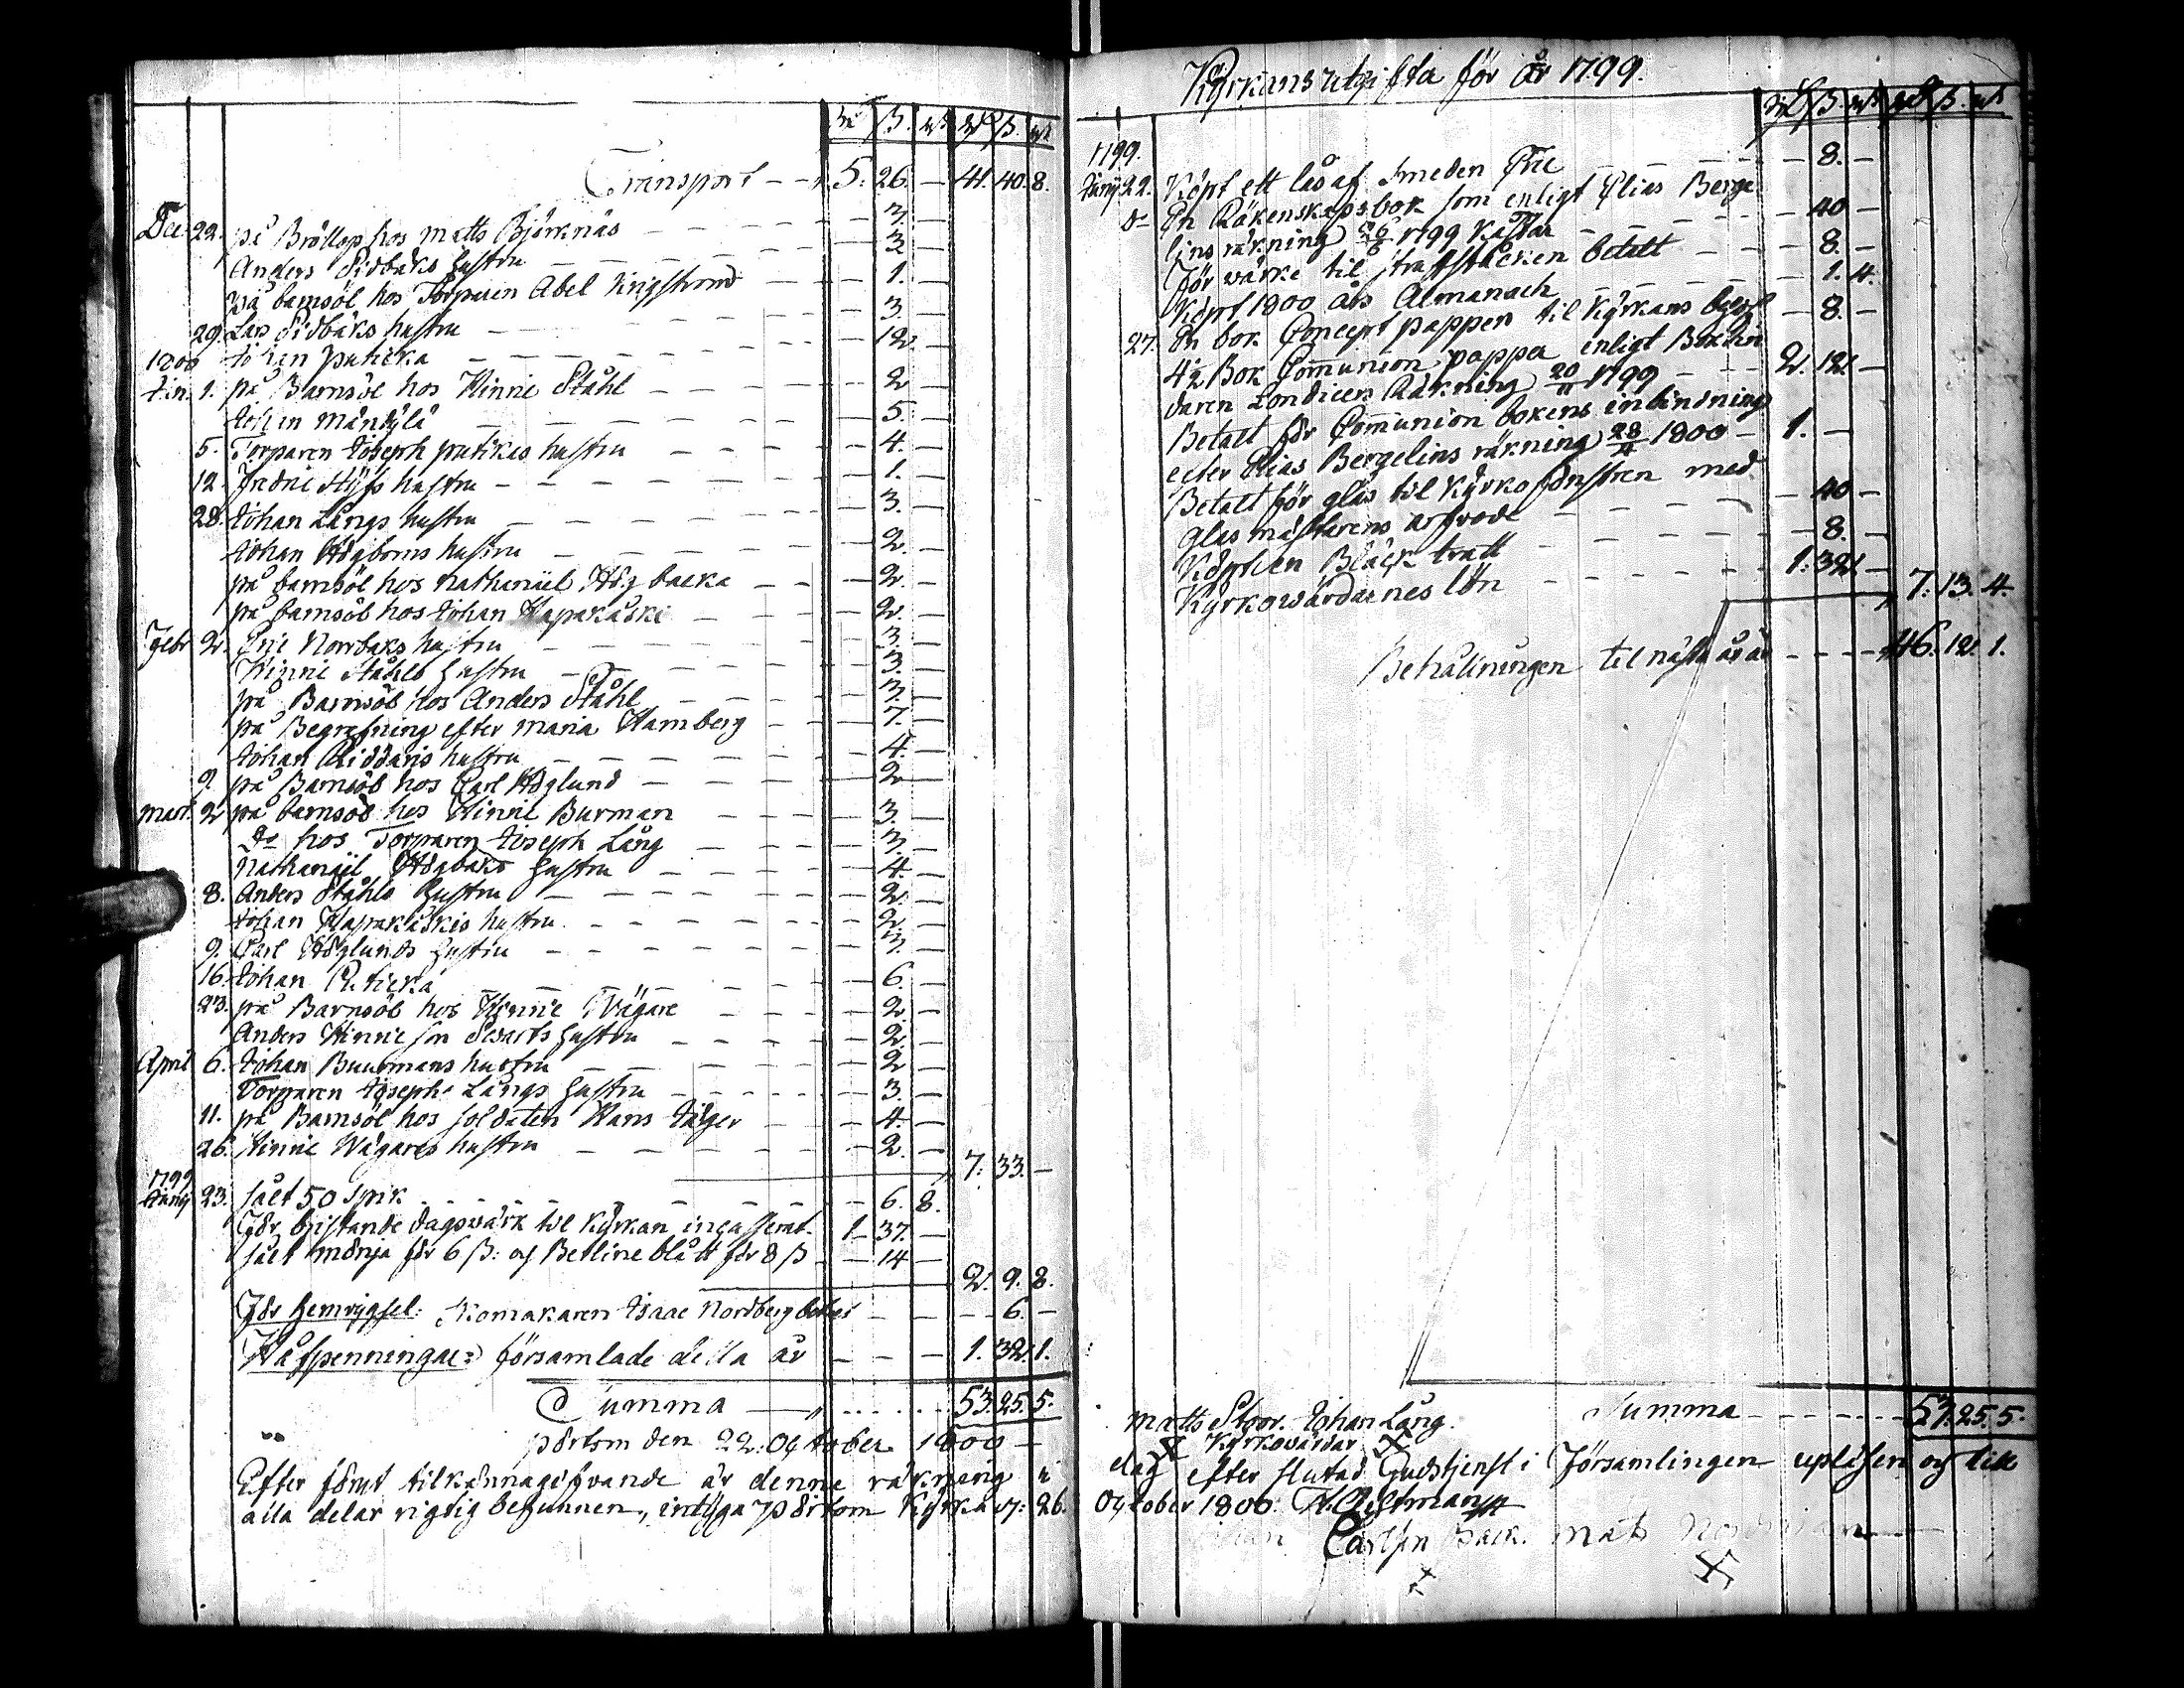 Rd ß. rst Rd ß. rst
Transport - - 5: 26. - 41. 40. 8.
Dec. 22. på Bröllop hos matts Björknäs - - - 3. -
Anders Sidbäks hustru - - - 3 -
på barnsöl hos Torparen Abel Kingstrand - - 1. -
29. Lars Sidbäks hustru - - - 3. -
1800 Johan puticka - - - 12. -
Jan. 1. på Barnsöl hos Hinric Ståhl - - - 2 -
Johan Mändylä - - - 5. -
5. Torparen Joseph putikas hustru - - - 4. -
12. Fredric Höjs hustru - - - 1. -
28. Johan Långs hustru - - - 3. -
Johan Högboms hustru - - - 2. -
på barnsöl hos nathaniel Högbacka - - 2. -
på barnsöl hos Johan Hapakåski - - 2. -
Febr 2. Eric Norrbäks hustru - - - 3. -
Hinric Ståhls hustru - - - 3. -
på Barnsöl hos Anders Ståhl - - - 3. -
på Begrafning efter maria Hamberg - - 7. -
Johan Riddaris hustru - - - 4. -
9. på Barnsöl hos Carl Höglund - - - 2 -
mart. 2 på barnsöl hos Hinric Burman - - - 3. -
Do hos Torparen Joseph Lång - - - 3. -
Nathaniel Högbäks hustru - - - 4. -
8. Anders Ståhls hustru - - - 2. -
Johan Hapakåskis hustru - - - 2. -
9. Carl Höglunds hustru - - - 3. -
16. Johan Puticka - - - 6. -
23. på Barnsöl hos Hinric Wägare - - - 2. -
Anders Hinric son hustru - - - 2. -
April 6. Johan Buurmans hustru - - - 2 -
Torparen Joseph Långs hustru - - - 3. -
11. på Barnsöl hos soldaten Hans Jäger - - 4. -
26. Hinric Wägares hustru - - - 2. -
7: 33. -
1799
Junij 23. sålt 50 spik - - - 6. 8.
För bristande dagswärk til Kyrkan incasserat - 1 - 37. -
sålt mönja för 6 ß: og Berline blått för 8 ß - - 14 -
2. 9. 8.
För hemrygsel: skomakaren Isaac Nordberg betalt - - - 6. -
Håfpenningar: församlade detta år - - - 1. 32. 1.
Summa - - - 53. 25. 5.
pörtom den 22. October 1800 -
Efter förut tilkännagifvande är denne räkning i
alla delar rigtig befunnen, intyga pörtom Kyrka d: 26.
Kyrkans utgifta för år 1799.
Rd ß. rst Rd ß. rst
1799.
Junij 22. Köpt ett lås af smeden Eric - - - 8. -
d- En Räkenskapsbok som enligt Elias Berge
lins räkning 26/6 1799 kåstar - - - 40 -
För wärke til straffstäcken betalt - - - 8. -
Köpt 1800 års Almanach - - - 1. 4.
27. En bok Concept papper til Kyrkans behof - 8. -
4½ Bok Communion papper enligt Bokbin
daren Londicers Räkning 20/11 1799 - - - 2. 12. -
Betalt för Communion bokens inbindning
efter Elias Bergelins räkning 28/4 1800 - 1. -
Betalt för glas til Kyrko fönstren med
Glas mästarens arfvode - - - 40 -
Köpt en Bläck tratt - - - 8. -
Kyrkowärdarnes lön - - - 1: 32. -
7: 13. 4.
Behållningen til nästa år är - - - 46. 12. 1.
Summa - - - 53. 25. 5.
matts Stoor. Johan Lång.
Kyrkowärdar
dag efter slutad Gudstjenst i Församlingen upläsen og till
October 1800.
Carlsen Back. mats